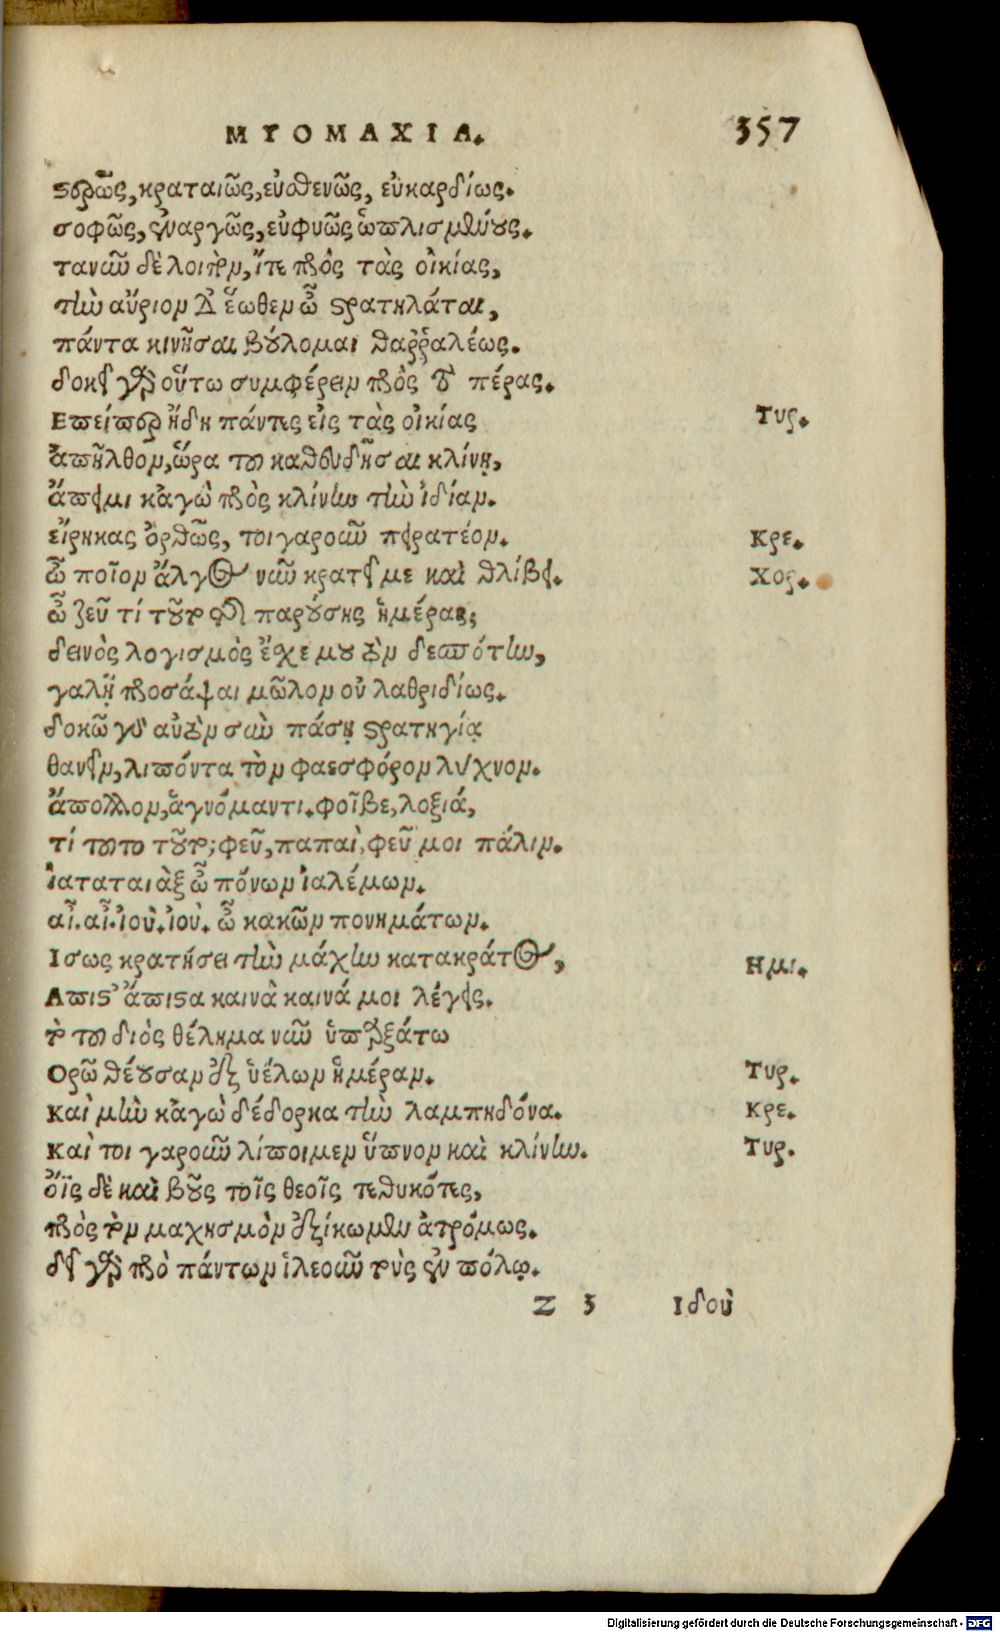 ΜΥΟΜΑΧΙΑ. 357
στερρῶς, κραταιῶς, εὐσθενῶς, εὐκαρδίως.
σοφῶς, ἐναργῶς, εὐφυῶς ὡπλισμένους.
τανῦν δὲ λοιπὸν, ἴτε πρὸς τὰς οἰκίας,
τὴν αὔριον δ' ἕωθεν ὦ στρατηλάται,
πάντα κινῆσαι βούλομαι θαῤῥαλέως.
δοκεῖ γὰρ οὕτω συμφέρειν πρὸς τὸ πέρας.
Επείπερ ἤδη πάντες εἰς τὰς οἰκίας Τυρ.
ἀπῆλθον, ὥρα του καθευδῆσαι κλίνῃ,
ἄπειμι κἀγὼ πρὸς κλίνην τὴν ἰδίαν.
εἴρηκας ὀρθῶς, τοιγαροῦν πειρατέον. Κρε.
ὦ ποῖον ἄλγος νῦν κρατεῖ με καὶ θλίβει. Χορ.
ὦ ζεῦ τί τοῦτο παρούσης ἡμέρας;
δεινὸς λογισμὸς ἔχε μου τὸν δεσπότην,
γαλῇ προσάψαι μῶλον οὐ λαθριδίως.
δοκῶ γε αὐτὸν σὺν πάσῃ στρατηγίᾳ
θανεῖν, λιπόντα τὸν φαεσφόρον λύχνον.
ἄπολλον, ἁγνόμαντι. φοῖβε, λοξιά,
τί τουτο τοῦτο; φεῦ, παπαὶ, φεῦ μοι πάλιν.
ἰαταταιὰξ ὦ πόνων ἰαλέμων.
αἶ. αἶ. ἰοὺ. ἰοὺ. ὦ κακῶν πονημάτων.
Ισως κρατήσει τὴν μάχην κατακράτος, Ημι.
Απιστ' ἄπιστα καινὰ καινά μοι λέγεις.
τὸ του διὸς θέλημα νῦν ὑπαρξάτω
Ορῶ θέουσαν ἐξ ὑέλων ἡμέραν. Τυρ.
Καὶ μὴν κἀγὼ δέδορκα τὴν λαμπηδόνα. Κρε.
Καὶ τοι γαροῦν λίποιμεν ὕπνον καὶ κλίνην. Τυρ.
ὄϊς δὲ καὶ βοῦς τοῖς θεοῖς τεθυκότες,
πρὸς τὸν μαχησμὸν ἐξίκωμεν ἀτρόμως.
δεῖ γὰρ πρὸ πάντων ἱλεοῦν τοὺς ἐν πόλῳ.
Z 3 Ιδοὺ
Digitalisierung gefördert durch die Deutsche Forschungsgemeinschaft - DFG